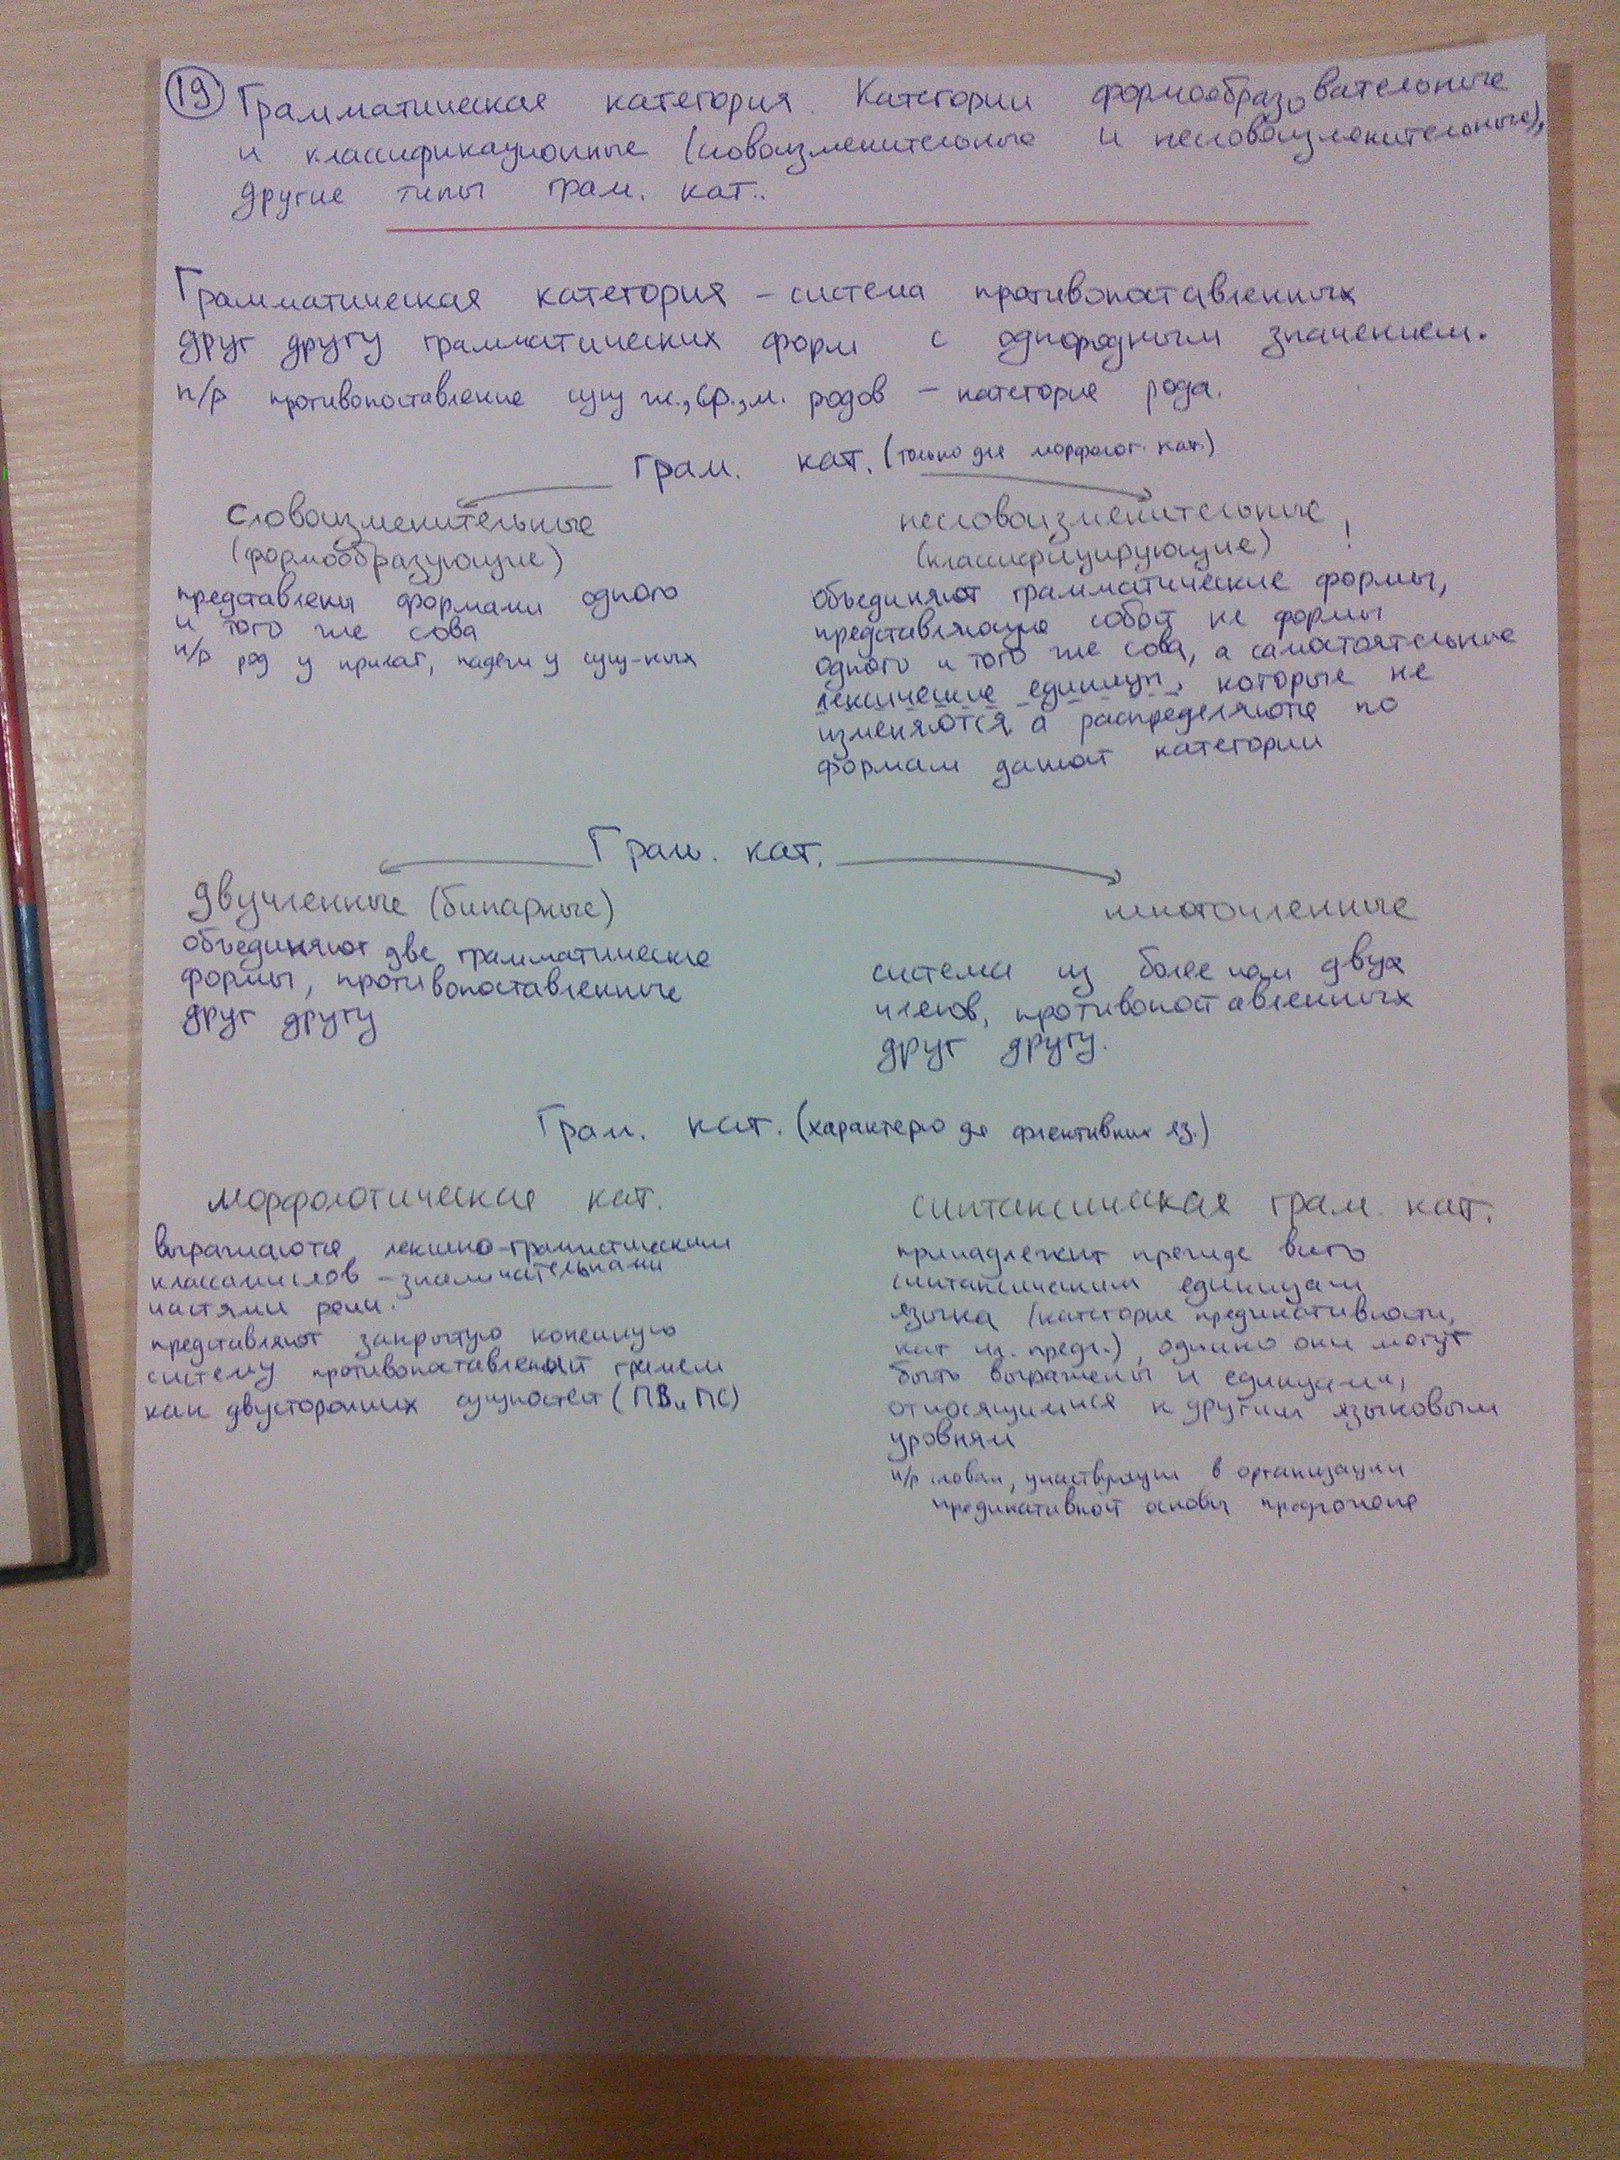 19 Грамматическая категория. Категории формообразовательные
и классификационные (словоизменительные и несловоизменительные),
другие типы грам. кат..
Грамматическая категория – система противопоставленных
друг другу грамматических форм с однородным значением.
п/р противопоставление сущ ж., ср., м. родов – категория рода.
грам. кат. (только для морфолог. кат.)
словоизменительные
(формообразующие)
представлены формами одного
и того же сова
п/р род у прилаг, падеж у сущ-ных
несловоизменительные !
(классифицирующие)
объединяют грамматические формы,
представляющие собой не формы
одного и того же сова, а самостоятельные
лексические единицы, которые не
изменяются, а распределяются по
формам данной категории
Грам. кат.
двучленные (бинарные)
объединяют две грамматические
формы, противопоставленные
друг другу
многочленные
система из более чем двух
членов, противопоставленных
друг другу.
Грам. кат. (характерно для флективных яз.)
морфологическая кат.
выражаются лексико-грамматическими
классами слов – знаменательными
частями речи.
представляют закрытую конечную
систему противопоставлений граммем
как двусторонних сущностей (ПВ и ПС)
синтаксическая грам. кат.
принадлежит прежде всего
синтаксическим единицам
языка (категория предикативности,
кат чл. предл.), однако они могут
быть выражены и единицами,
относящимися к другим языковым
уровням
п/р словам, участвующие в организации
предикативной основы предложения